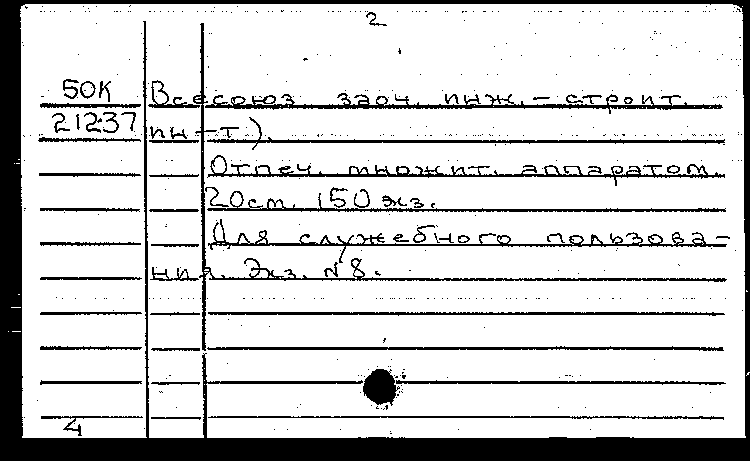 2
50К Всесоюз. заоч. инж.-строит.
21237 ин-т).
Отпеч. множит. аппаратом.
20 см. 150 экз.
Для служебного пользова-
ния. Экз. №8.
4